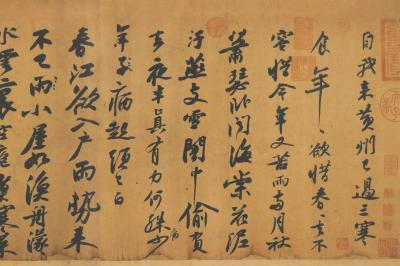 自我來黃州已過三寒
食年〻欲惜春〻去不
容惜今年又苦雨兩月秋
蕭瑟卧聞海棠花泥
汙燕支雪闇中偷負
去夜半真有力何殊少
病
年子病起頭已白
春江欲入戶雨勢來
不已雨小屋如漁舟濛
水雲裏空庖煮寒菜